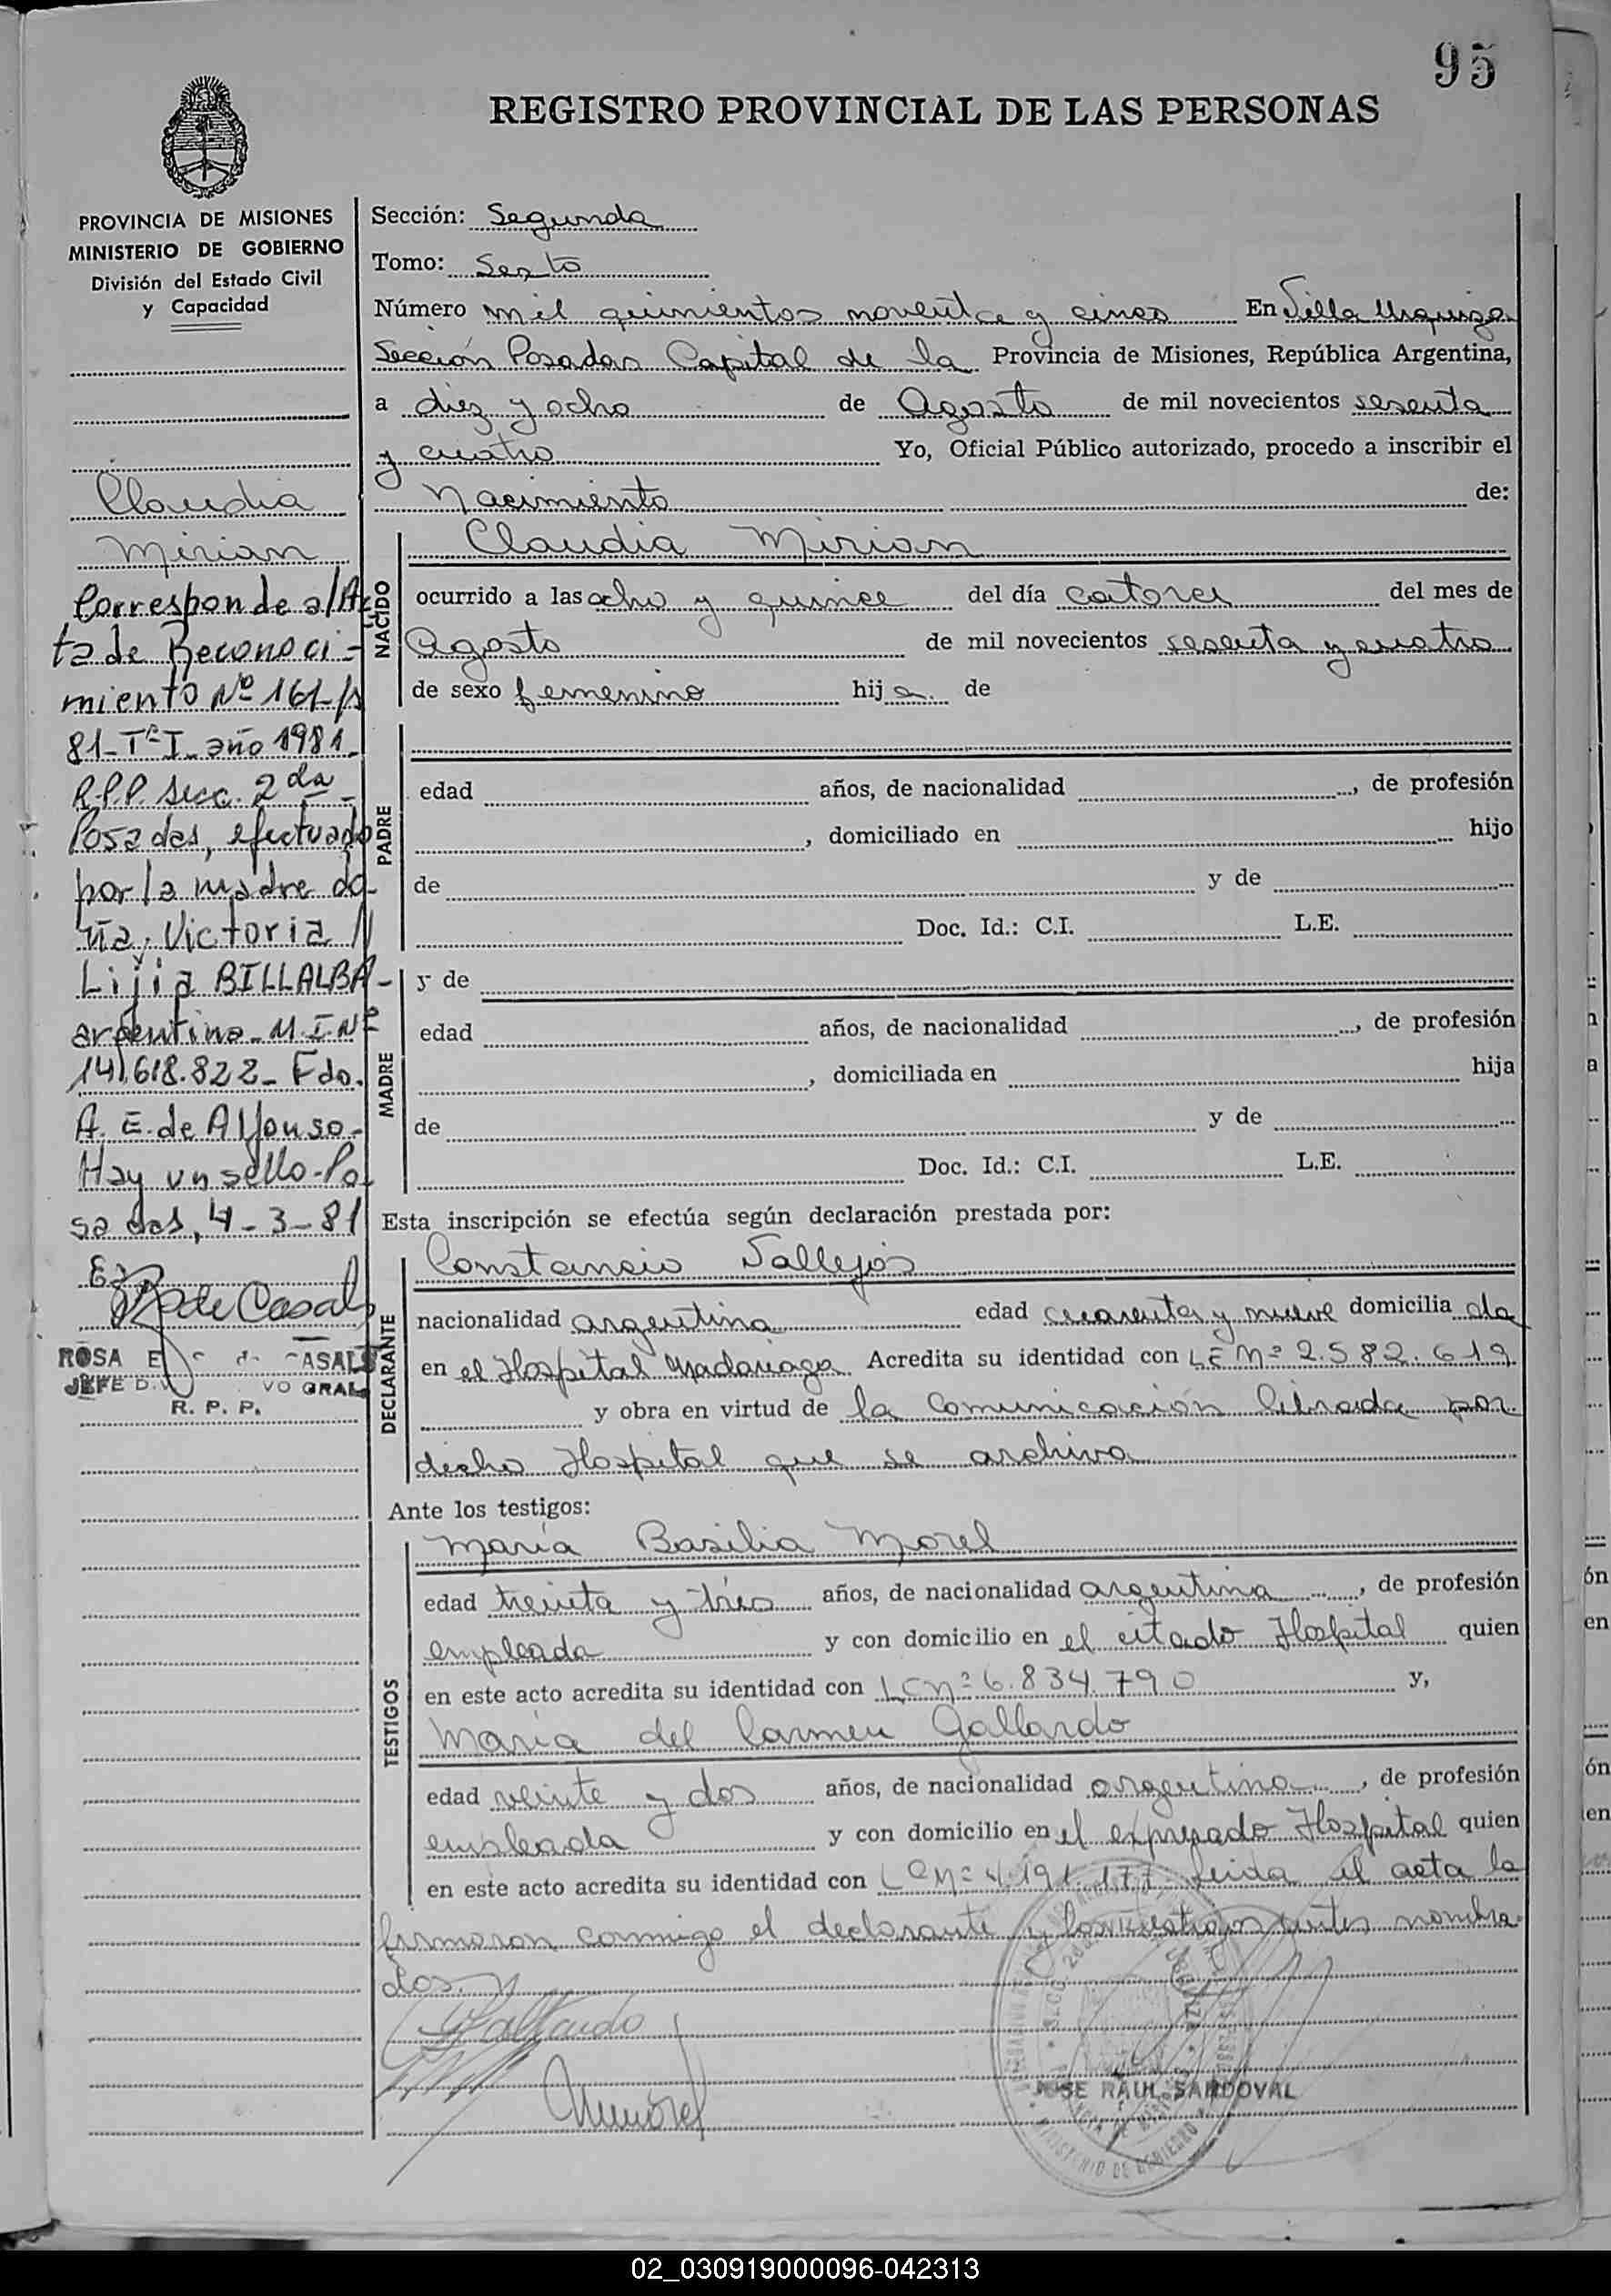 95
REGISTRO PROVINCIAL DE LAS PERSONAS
PROVINCIA DE MISIONES
MINISTERIO DE GOBIERNO
División del Estado Civil
y Capacidad
Claudia
Mirian
Corresponde al Ac
ta de Reconoci-
miento Nº 161-
81-Tº I- año 1981-
R.P.P. Secc. 2da-
Posadas, efectuado
por la madre do-
ña, Victoria
Lijia BILLALBA-
argentina-M.I.Nº
14.618.822- Fdo.
A. E. de Alfonso-
Hay un sello-Po
sadas, 4-3-81
R de Casals
ROSA E de CASALS
JEFE VO GRAL
R. P. P.
Sección: Segunda
Tomo: Sexto
Número mil quinientos noventa y cinco En Villa Urquiza
Sección Posadas Capital de la Provincia de Misiones, República Argentina,
a diez y ocho de Agosto de mil novecientos sesenta
y cuatro Yo, Oficial Público autorizado, procedo a inscribir el
Nacimiento de:
NACIDO
Claudia Mirian
ocurrido a las ocho y quince del día catorce del mes de
Agosto de mil novecientos sesenta y cuatro
de sexo femenino hija de
PADRE
edad años, de nacionalidad , de profesión
, domiciliado en hijo
de y de
Doc. Id.: C.I. L.E.
MADRE
y de
edad años, de nacionalidad , de profesión
, domiciliada en hija
de y de
Doc. Id.: C.I. L.E.
Esta inscripción se efectúa según declaración prestada por:
DECLARANTE
Constancio Vallejos
nacionalidad argentina edad cuarenta y nueve domicilia da
en el Hospital Madariaga Acredita su identidad con LE Nº 2.582.619
y obra en virtud de la Comunicación librada por
dicho Hospital que se archiva
Ante los testigos:
TESTIGOS
María Basilia Morel
edad treinta y trés años, de nacionalidad argentina, de profesión
empleada y con domicilio en el citado Hospital quien
en este acto acredita su identidad con LC Nº 6.834.790 y,
María del Carmen Gallardo
edad veinte y dos años, de nacionalidad argentina, de profesión
empleada y con domicilio en el expresado Hospital quien
en este acto acredita su identidad con LC Nº 4.191.177 Leida el acta la
firmaron conmigo el declarante y los testigos antes nombra
dos.
Gallardo
Morel
JOSE RAUL SANDOVAL
MINISTERIO DE GOBIERNO
02_030919000096-042313